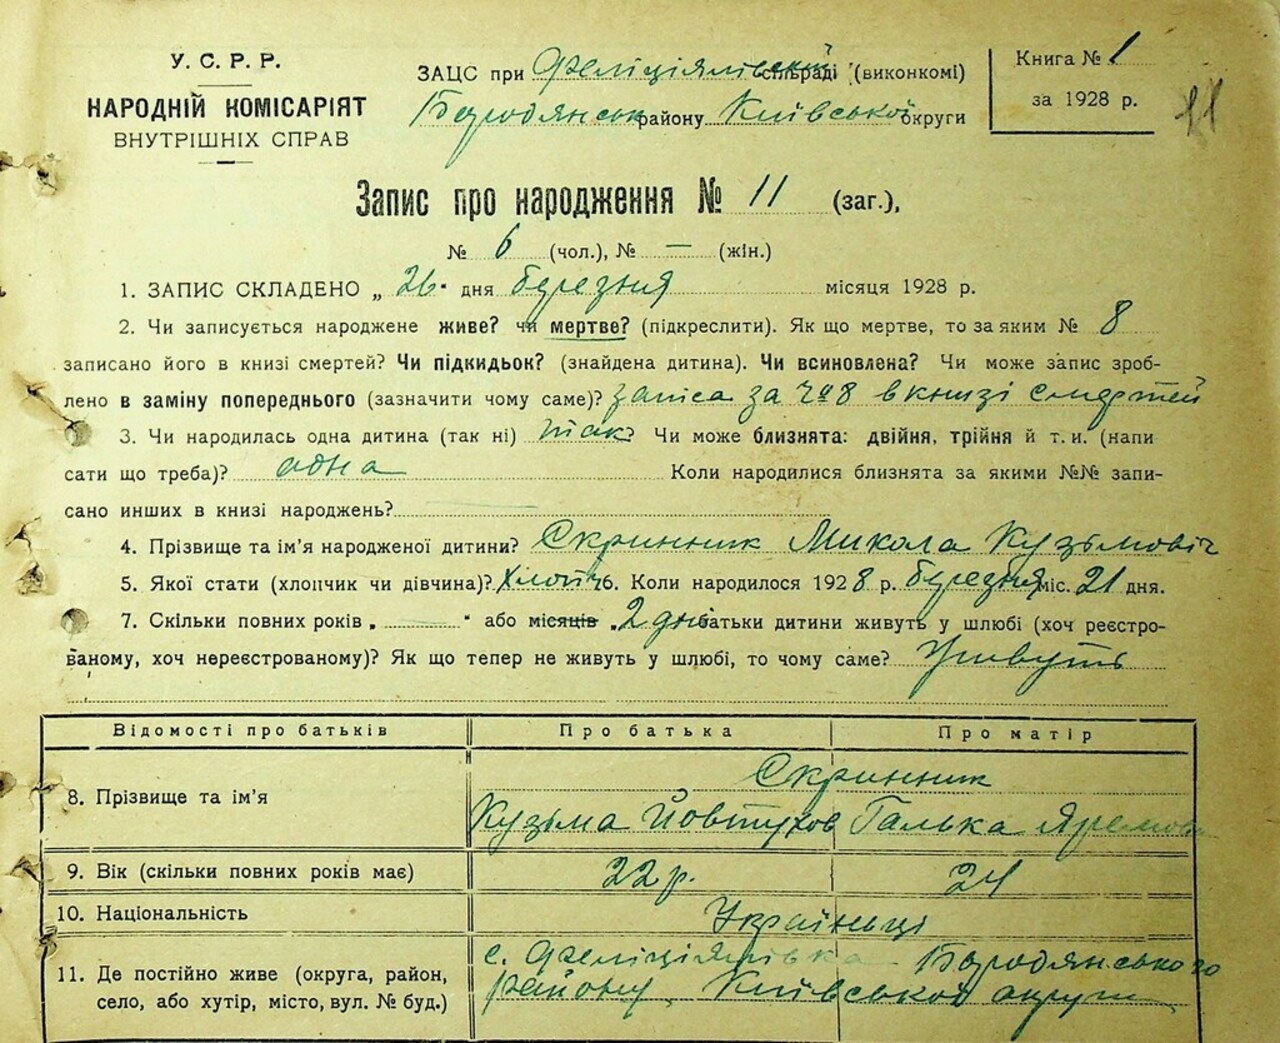 У. С. Р. Р.
НАРОДНІЙ КОМІСАРІЯТ
ВНУТРІШНІХ СПРАВ
ЗАЦС при Феліціялівській сільраді (виконкомі)
Бородянськ району Київської округи
Книга № 1
за 1928 р.
11
Запис про народження № 11 (заг.),
№ 6 (чол.), № — (жін.)
1. ЗАПИС СКЛАДЕНО „ 26 " дня березня місяця 1928 р.
2. Чи записується народжене живе? чи мертве? (підкреслити). Як що мертве, то за яким № 8
записано його в книзі смертей? Чи підкидьок? (знайдена дитина). Чи всиновлена? Чи може запис зроб-
лено в заміну попереднього (зазначити чому саме)? записа за Чо 8 в книзі смертей
3. Чи народилась одна дитина (так ні) так? Чи може близнята: двійня, трійня й т. и. (напи
сати що треба)? одна Коли народилися близнята за якими №№ запи-
сано инших в книзі народжень?
4. Прізвище та ім'я народженої дитини? Скринник Микола Кузьмовіч
5. Якої стати (хлопчик чи дівчина)? Хлопч 6. Коли народилося 1928 р. березня міс. 21 дня.
7. Скільки повних років „ — " або місяців „ 2 дні батьки дитини живуть у шлюбі (хоч реєстро-
ваному, хоч нереєстрованому)? Як що тепер не живуть у шлюбі, то чому саме? Живуть
Відомості про батьків Про батька Про матір
8. Прізвище та ім'я Скринник
Кузьма Йовтухов Галька Яремов
9. Вік (скільки повних років має) 22 р. 24
10. Національність Українці
11. Де постійно живе (округа, район, с. Феліціялівка Бородянського
село, або хутір, місто, вул. № буд.) району, Київської округи